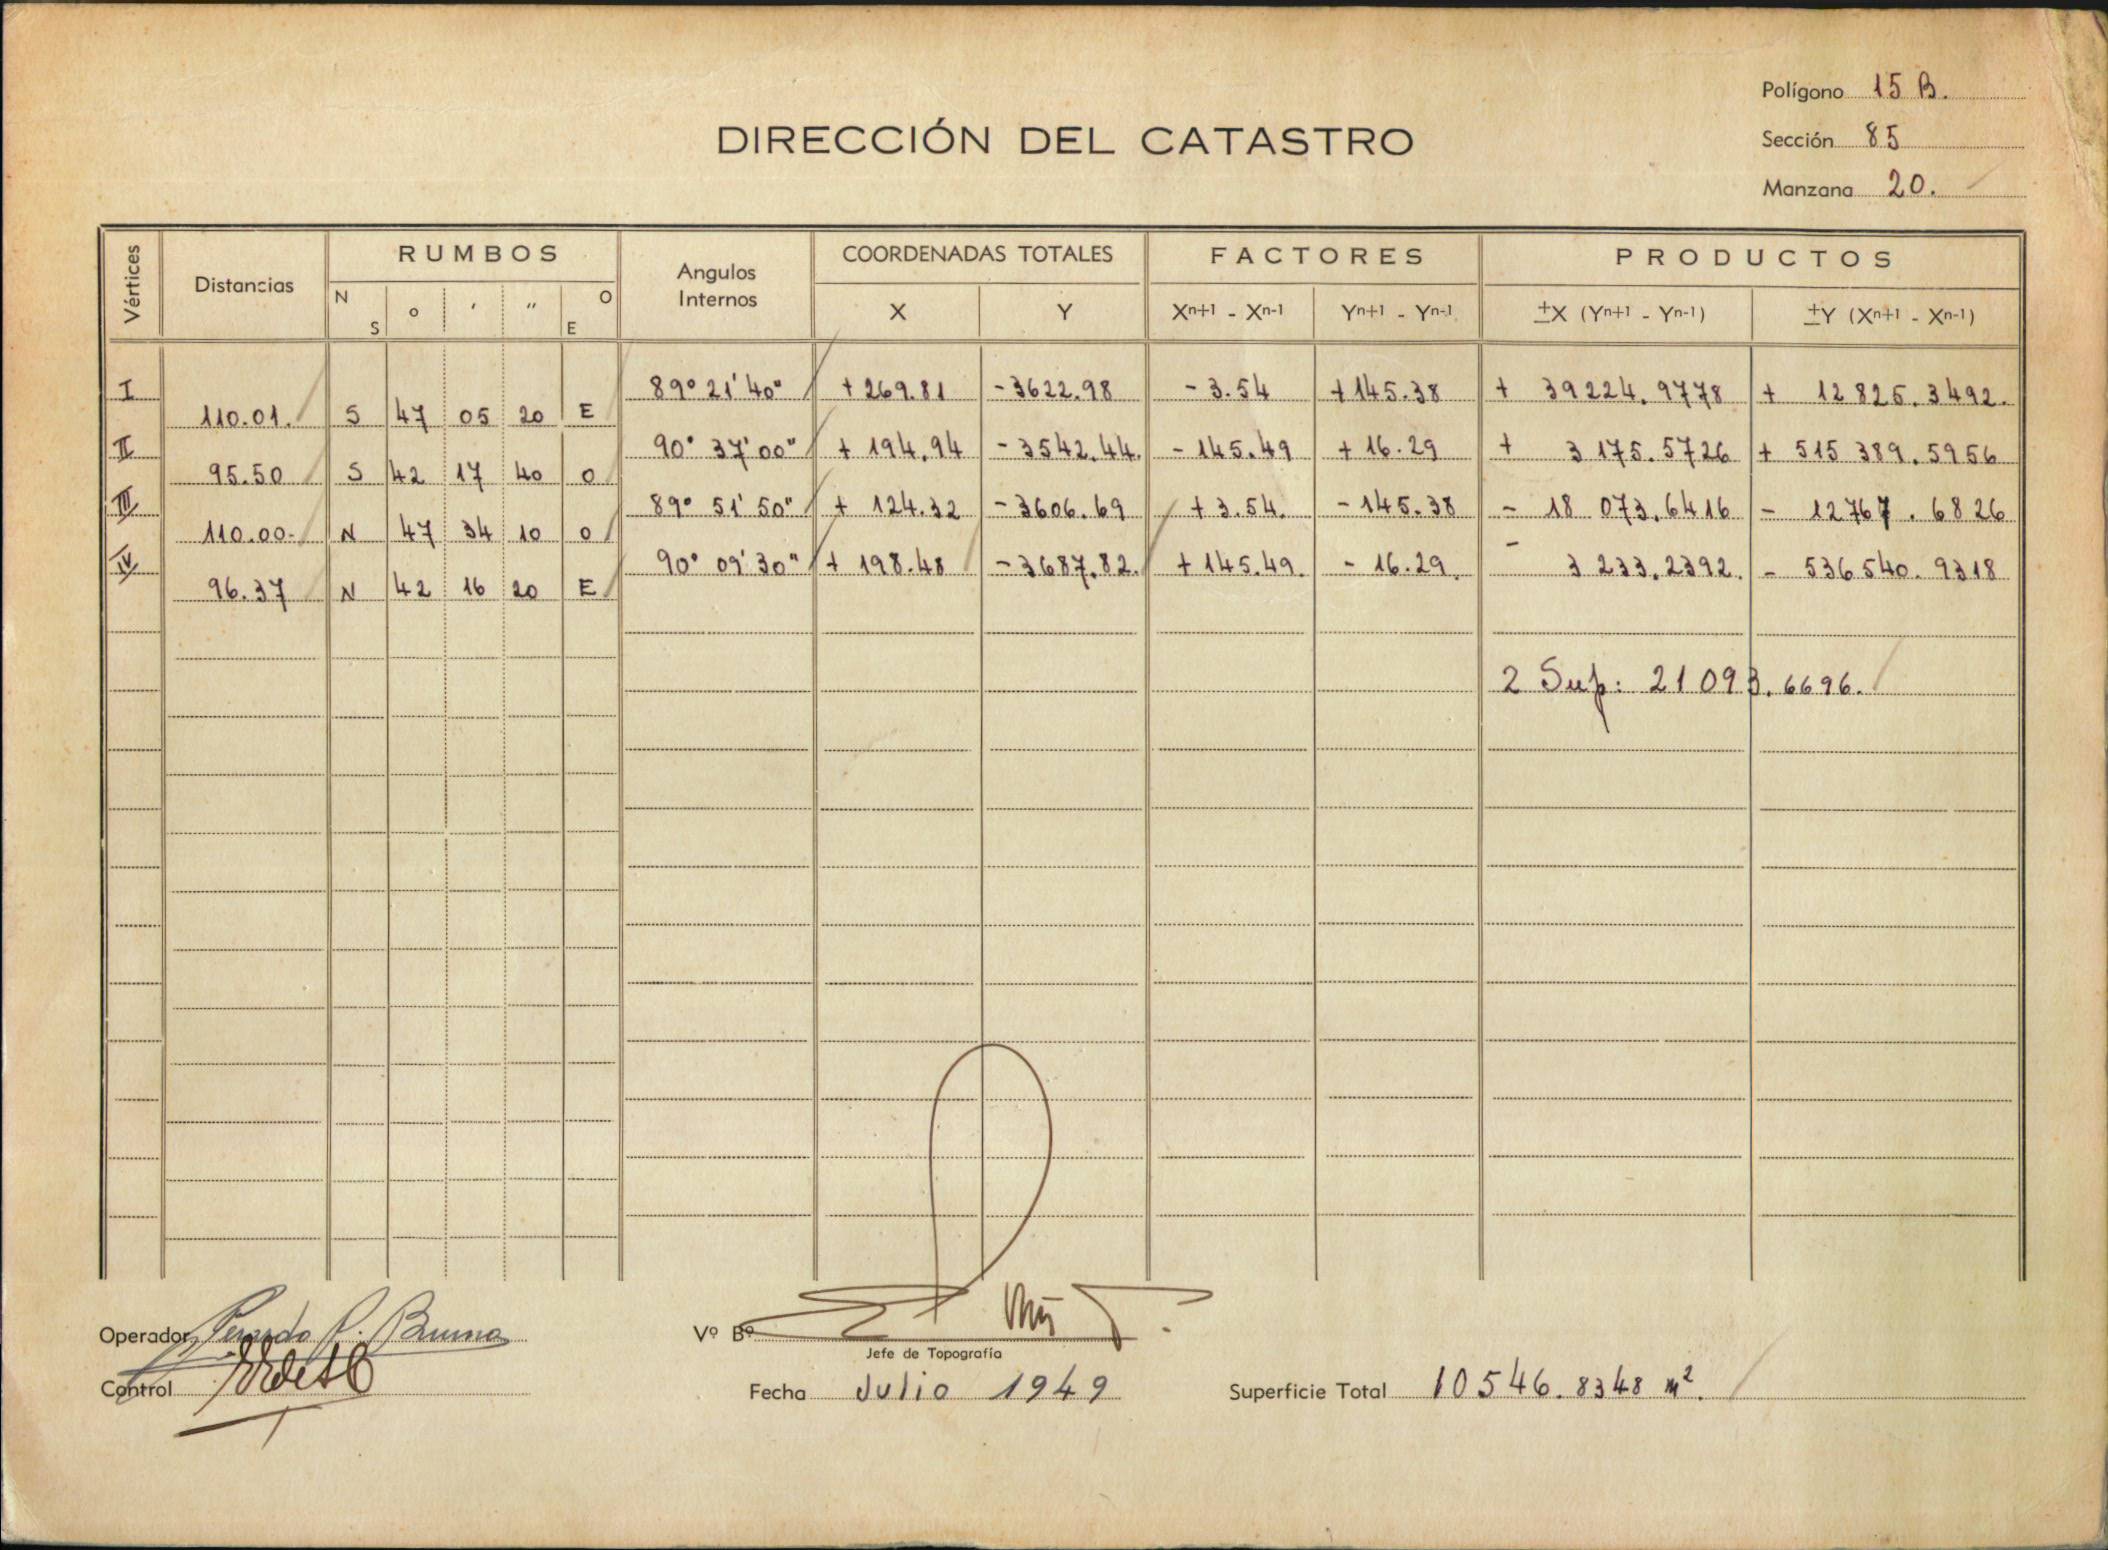 Polígono 15 B.
DIRECCIÓN DEL CATASTRO
Sección 85
Manzana 20.
Vértices Distancias RUMBOS Angulos Internos COORDENADAS TOTALES FACTORES PRODUCTOS
N S ° ' " O E X Y Xn+1 - Xn-1 Yn+1 - Yn-1 ±X (Yn+1 - Yn-1) ±Y (Xn+1 - Xn-1)
I 89° 21' 40" + 269.81 - 3622.98 - 3.54 + 145.38 + 39224.9778 + 12 825.3492.
110.01. S 47 05 20 E
II 90° 37' 00" + 194.94 - 3542.44. - 145.49 + 16.29 + 3 175.5726 + 515 389.5956
95.50 S 42 17 40 O
III 89° 51' 50" + 124.32 - 3606.69 + 3.54. - 145.38 - 18 073.6416 - 12767.6826
110.00- N 47 34 10 O
IV 90° 09' 30" + 198.48 - 3687.82. + 145.49. - 16.29. - 3 233.2392. - 536 540.9318
96.37 N 42 16 20 E
2 Sup: 21 093.6696.
Operador
Vº Bº
Jefe de Topografía
Control
Fecha Julio 1949
Superficie Total 10546.8348 m².